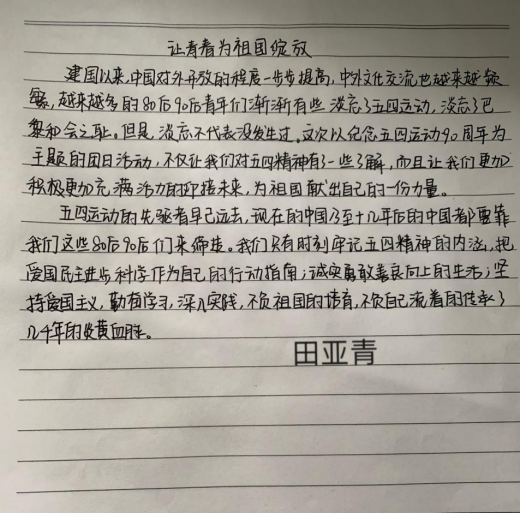 让青春为祖国绽放
建国以来,中国对外开放的程度一步步提高,中外文化交流也越来越频
繁,越来越多的80后90后青年们渐渐有些淡忘了五四运动,淡忘了巴
黎和会之耻。但是,淡忘不代表没发生过。这次以纪念五四运动90周年为
主题的团日活动,不仅让我们对五四精神有了一些了解,而且让我们更加
积极更加充满活力的迎接未来,为祖国献出自己的一份力量。
五四运动的先驱者早已远去,现在的中国乃至十几年后的中国都要靠
我们这些80后90后们来缔造。我们只有时刻牢记五四精神的内涵,把
爱国民主进步科学作为自己的行动指南;诚实勇敢善良向上的生活;坚
持爱国主义,勤奋学习,深入实践,不负祖国的培育,不负自己流着的传承了
几千年的炎黄血脉。
田亚青